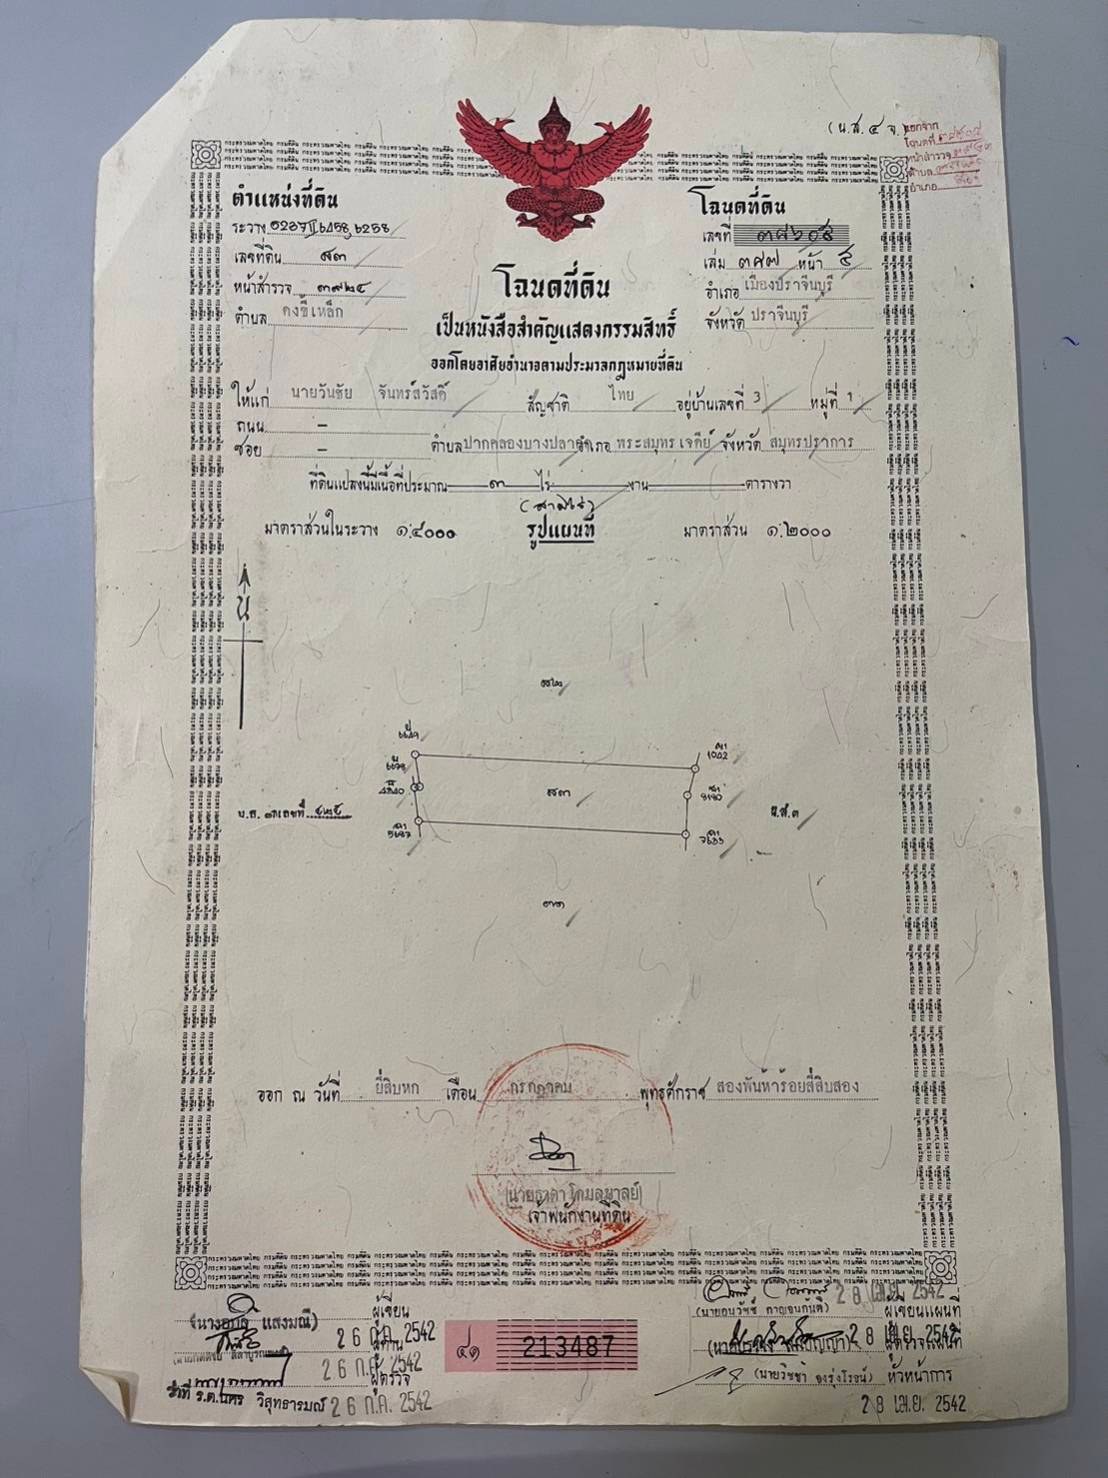 (น.ส. ๔ จ.)
ออกจาก
โฉนดที่
หน้าสำรวจ
ตำบล
อำเภอ
ตำแหน่งที่ดิน
ระวาง 5237 II 6458, 6258
เลขที่ดิน ๙๓
หน้าสำรวจ ๓๙๒๔
ตำบล ดงขี้เหล็ก
โฉนดที่ดิน
เลขที่ ๓๘๖๐๕
เล่ม ๓๘๗ หน้า ๕
อำเภอ เมืองปราจีนบุรี
จังหวัด ปราจีนบุรี
โฉนดที่ดิน
เป็นหนังสือสำคัญแสดงกรรมสิทธิ์
ออกโดยอาศัยอำนาจตามประมวลกฎหมายที่ดิน
ให้แก่ นายวันชัย จันทร์สวัสดิ์ สัญชาติ ไทย อยู่บ้านเลขที่ 3 หมู่ที่ 1
ถนน -
ซอย - ตำบล ปากคลองบางปลากด อำเภอ พระสมุทรเจดีย์ จังหวัด สมุทรปราการ
ที่ดินแปลงนี้มีเนื้อที่ประมาณ ๓ ไร่ งาน ตารางวา
(สามไร่)
มาตราส่วนในระวาง ๑:๔๐๐๐ รูปแผนที่ มาตราส่วน ๑:๒๐๐๐
น
๙๓
น.ส. ๓ก เลขที่ ๔๒๕
น.ส.๓
ออก ณ วันที่ ยี่สิบหก เดือน กรกฎาคม พุทธศักราช สองพันห้าร้อยสี่สิบสอง
(นายธาดา โกมลมาลย์)
เจ้าพนักงานที่ดิน
แสงมณี) ผู้เขียน
26 ก.ค. 2542
ผู้ทาน
26 ก.ค. 2542
ผู้ตรวจ
ว่าที่ ร.ต.นคร วิสุทธารมณ์ 26 ก.ค. 2542
๔๑ 213487
28 เม.ย. 2542
ผู้เขียนแผนที่
28 เม.ย. 2542
ผู้ตรวจแผนที่
หัวหน้าการ
28 เม.ย. 2542